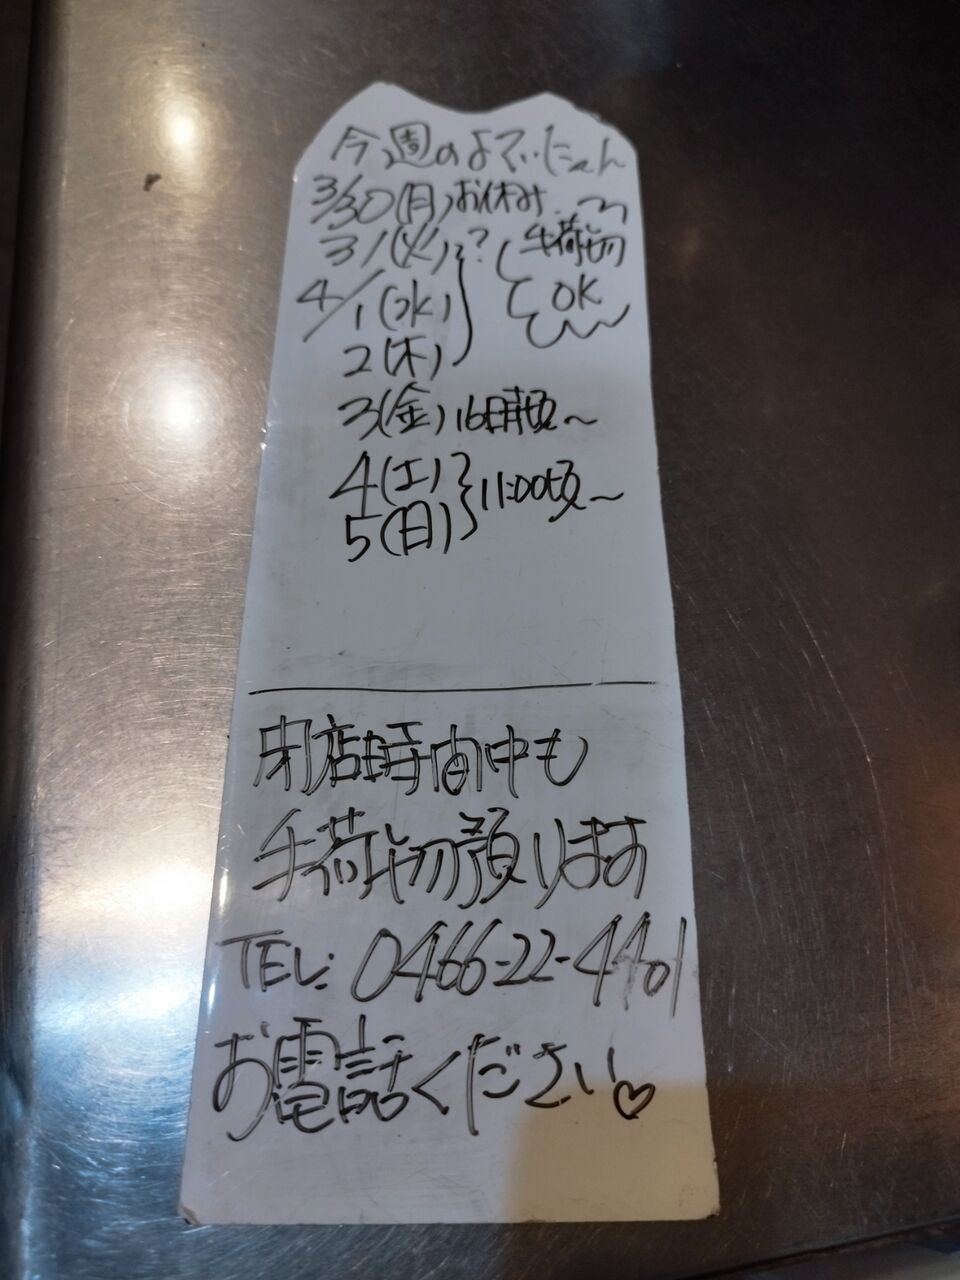 今週のよていにゃん
3/30(月)お休み
31(火)?
手荷物
OK
4/1(水)
2(木)
3(金)16時頃~
4(土)
5(日)
11:00頃~
閉店時間中も
手荷物預ります
TEL: 0466-22-4401
お電話ください♡